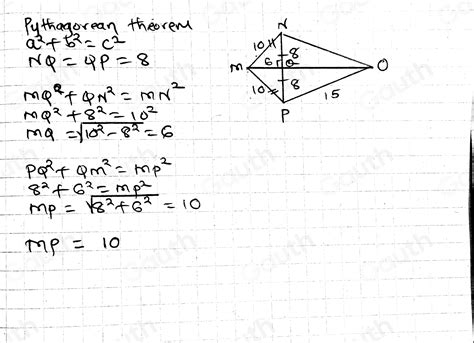 Pythagorean theorem
a² + b² = c²
NQ = QP = 8
MQ² + QN² = MN²
MQ² + 8² = 10²
MQ = √10² - 8² = 6
PQ² + QM² = MP²
8² + 6² = MP²
MP = √8² + 6² = 10
MP = 10
N
10
8
M
6
Q
O
10
8
15
P